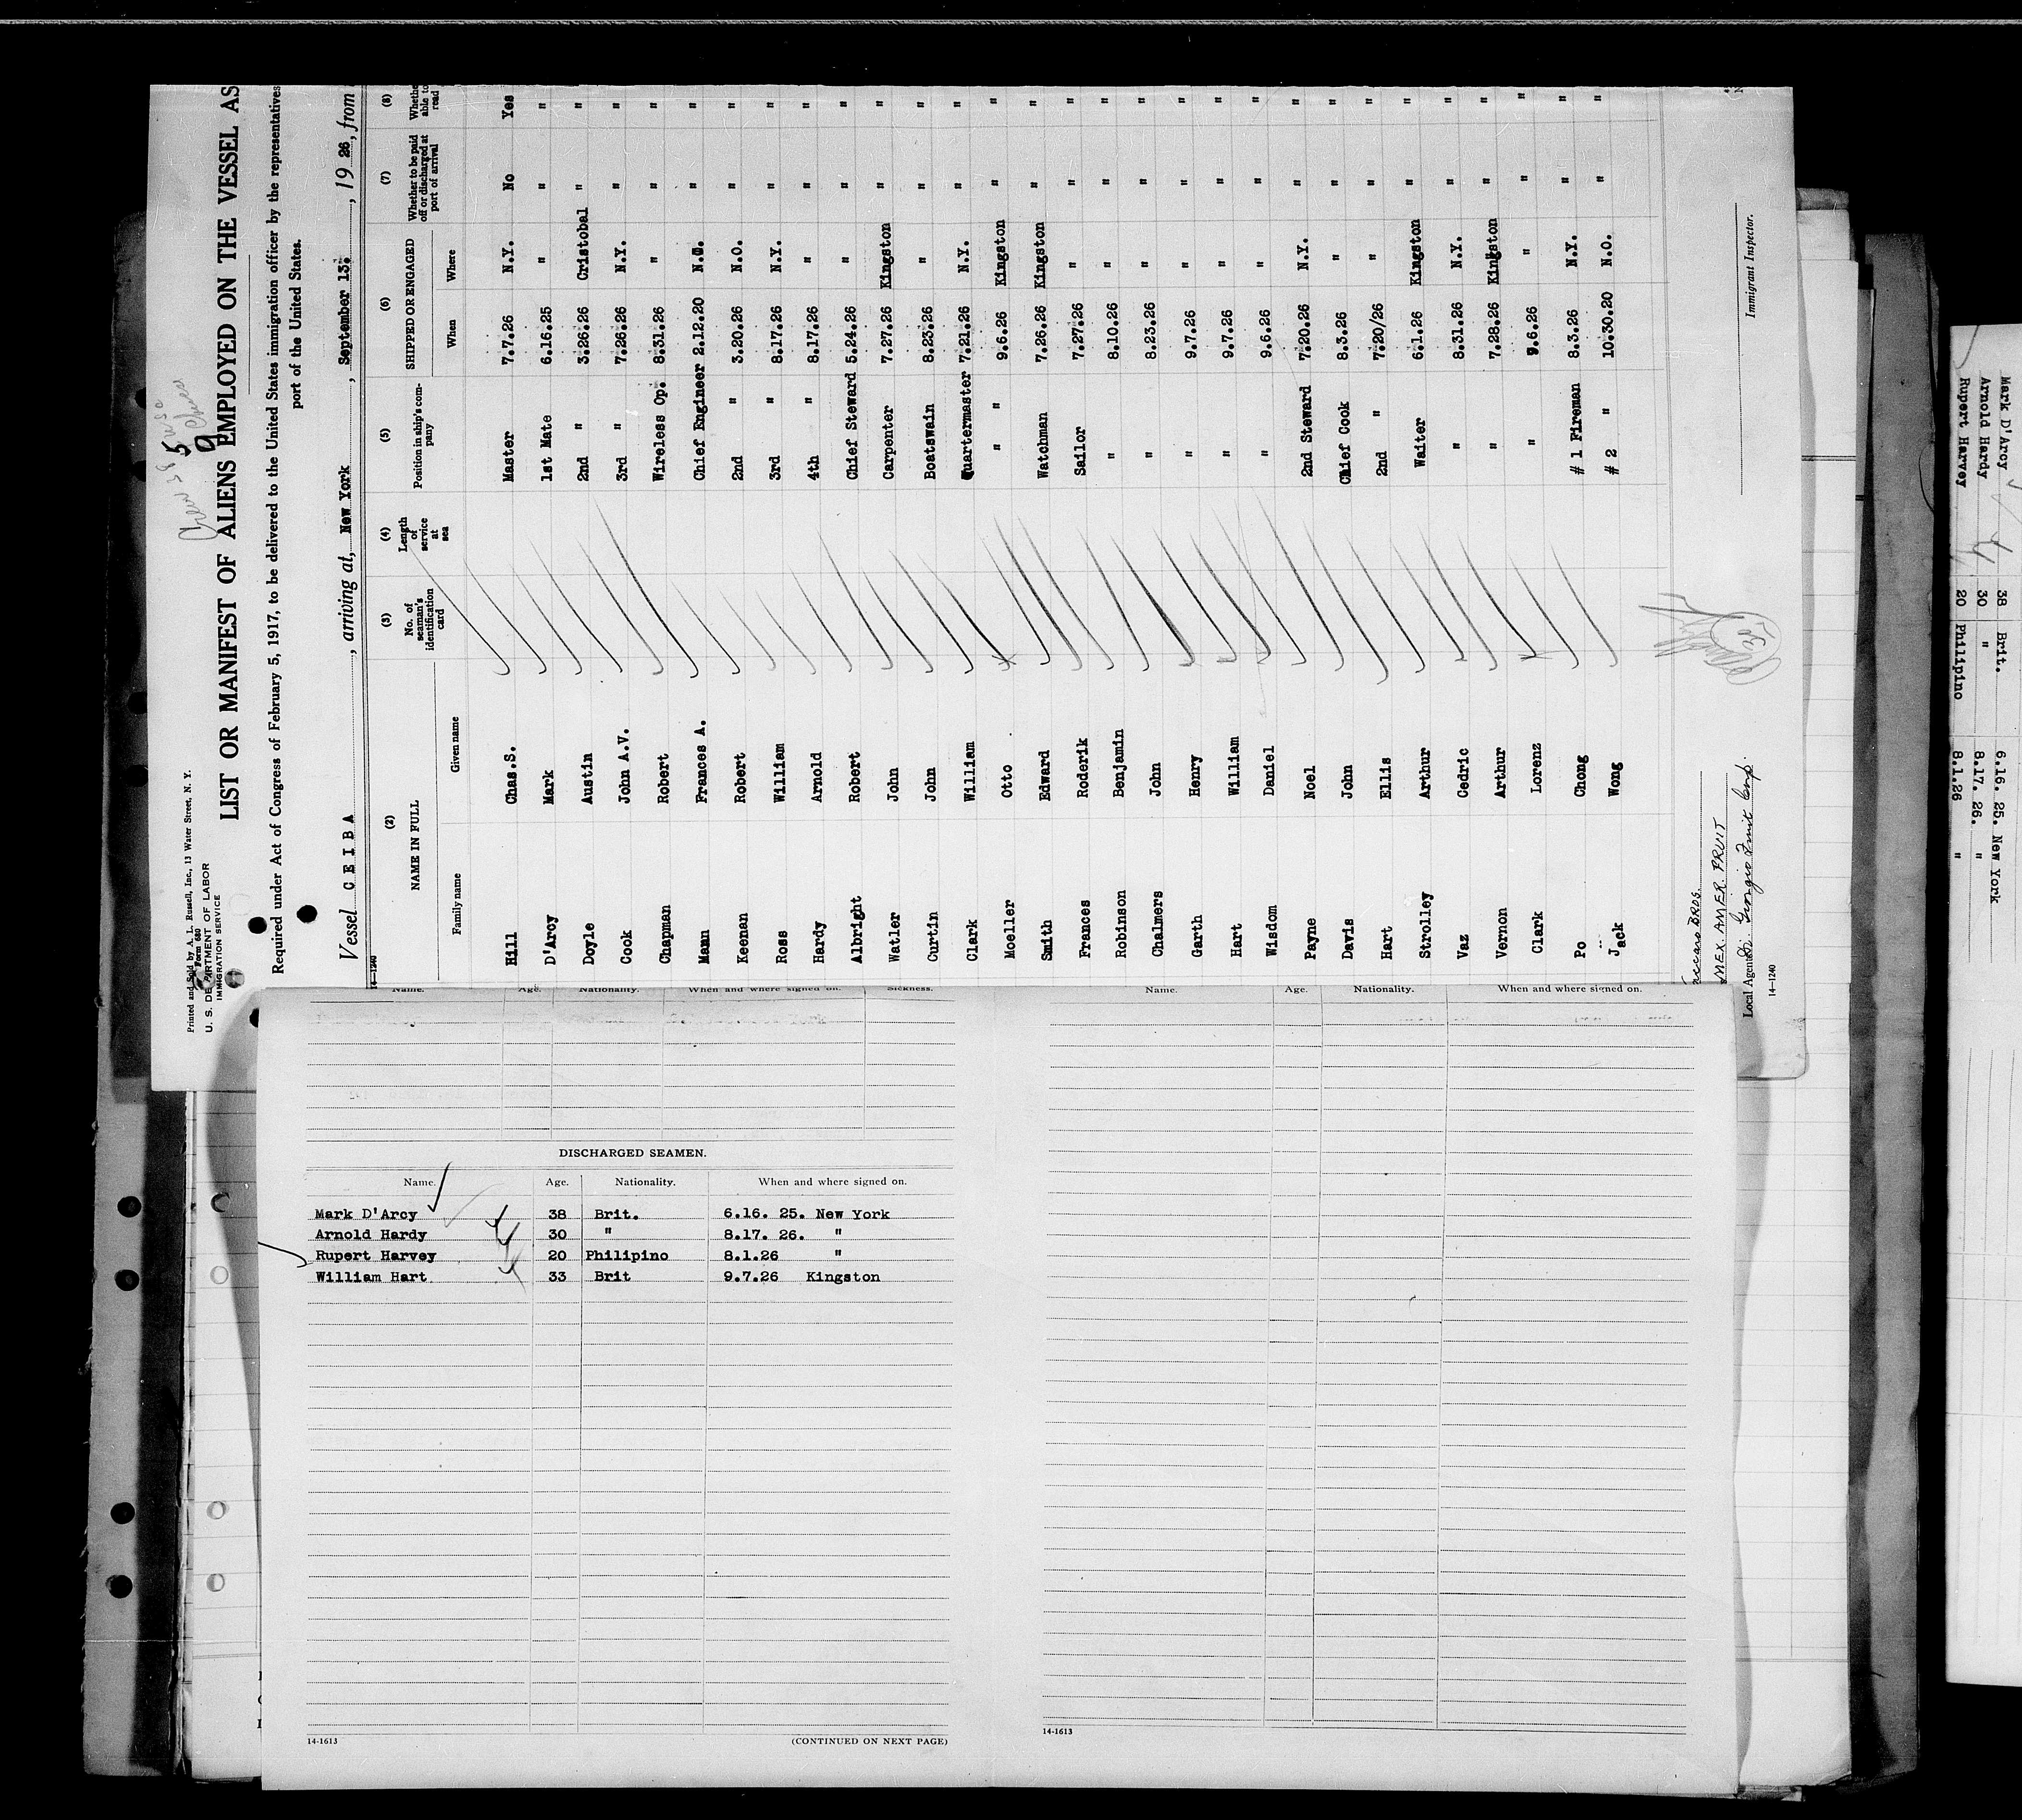 Printed and Sold by A. L. Russell, Inc., 13 Water Street, N. Y.
Form 680
U. S. DEPARTMENT OF LABOR
IMMIGRATION SERVICE
5
9
LIST OR MANIFEST OF ALIENS EMPLOYED ON THE VESSEL AS
Required under Act of Congress of February 5, 1917, to be delivered to the United States immigration officer by the representatives
port of the United States.
Vessel C E I B A, arriving at, New York, September 13., 1926, from
14-1240
(2) (3) (4) (5) (6) (7) (8)
NAME IN FULL No. of seaman's identification card Length of service at sea Position in ship's company SHIPPED OR ENGAGED Whether to be paid off or discharged at port of arrival Whether able to read
Family name Given name When Where
Hill Chas.S. Master 7.7.26 N.Y. No Yes
D'Arcy Mark 1st Mate 6.16.25 " " "
Doyle Austin 2nd " 3.26.26 Cristobal " "
Cook John A.V. 3rd " 7.26.26 N.Y. " "
Chapman Robert Wireless Op. 8.31.26 " " "
Mann Frances A. Chief Engineer 2.12.20 N.O. " "
Keenan Robert 2nd " 3.20.26 N.O. " "
Ross William 3rd " 8.17.26 N.Y. " "
Hardy Arnold 4th " 8.17.26 " " "
Albright Robert Chief Steward 5.24.26 " " "
Watler John Carpenter 7.27.26 Kingston " "
Curtin John Boatswain 8.23.26 " " "
Clark William Quartermaster 7.21.26 N.Y. " "
Moeller Otto " " 9.6.26 Kingston " "
Smith Edward Watchman 7.26.26 Kingston " "
Frances Roderik Sailor 7.27.26 " " "
Robinson Benjamin " 8.10.26 " " "
Chalmers John " 8.23.26 " " "
Garth Henry " 9.7.26 " " "
Hart William " 9.7.26 " " "
Wisdom Daniel " 9.6.26 " " "
Payne Noel 2nd Steward 7.20.26 N.Y. " "
Davis John Chief Cook 8.3.26 " " "
Hart Ellis 2nd " 7.20/26 " " "
Strolley Arthur Waiter 6.1.26 Kingston " "
Vaz Cedric " 8.31.26 N.Y. " "
Vernon Arthur " 7.28.26 Kingston " "
Clark Lorenz " 9.6.26 " " "
Po Chong # 1 Fireman 8.3.26 N.Y. " "
Jack Wong # 2 " 10.30.20 N.O. " "
BROS.
MEX. AMER. FRUIT
Local Agents Di Giorgio Fruit Corp.
Immigrant Inspector.
14-1240
Name. Age. Nationality. When and where signed on. Sickness.
DISCHARGED SEAMEN.
Name. Age. Nationality. When and where signed on.
Mark D'Arcy 38 Brit. 6.16. 25. New York
Arnold Hardy 30 " 8.17. 26. "
Rupert Harvey 20 Philipino 8.1.26 "
William Hart 33 Brit 9.7.26 Kingston
14-1613 (CONTINUED ON NEXT PAGE)
Name. Age. Nationality. When and where signed on.
14-1613
Mark D'Arcy 38 Brit. 6.16. 25. New York
Arnold Hardy 30 " 8.17. 26. "
Rupert Harvey 20 Philipino 8.1.26 "